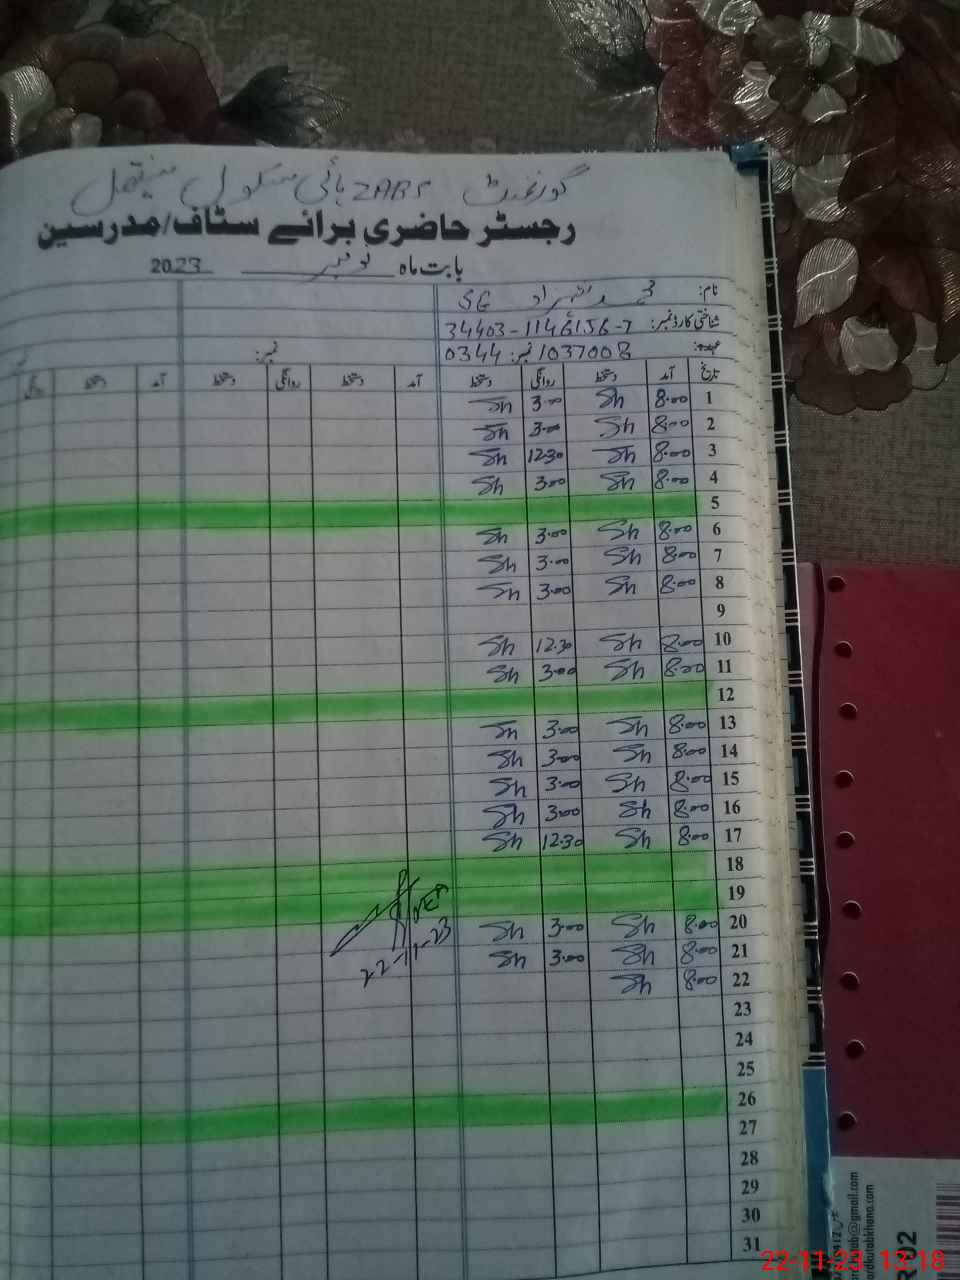 گورنمنٹ ZABS ہائی سکول
رجسٹر حاضری برائے سٹاف/مدرسین
بابت ماہ نومبر 2023
نام: محمد شہزاد SG
شناختی کارڈ نمبر: 34403-1146156-7
عہدہ: نمبر: 0344 1037008
نمبر:
تاریخ آمد دستخط روانگی دستخط آمد دستخط روانگی دستخط آمد دستخط روانگی
1 8.00 Sh 3.00 Sh
2 8.00 Sh 3.00 Sh
3 8.00 Sh 12.30 Sh
4 8.00 Sh 3.00 Sh
5
6 8.00 Sh 3.00 Sh
7 8.00 Sh 3.00 Sh
8 8.00 Sh 3.00 Sh
9
10 8.00 Sh 12.30 Sh
11 8.00 Sh 3.00 Sh
12
13 8.00 Sh 3.00 Sh
14 8.00 Sh 3.00 Sh
15 8.00 Sh 3.00 Sh
16 8.00 Sh 3.00 Sh
17 8.00 Sh 12.30 Sh
18
19
20 8.00 Sh 3.00 Sh
21 8.00 Sh 3.00 Sh
22 8.00 Sh
22-11-23
23
24
25
26
27
28
29
30
31
ub@gmail.com
ardkurabkhana.com
22-11-23 13:18